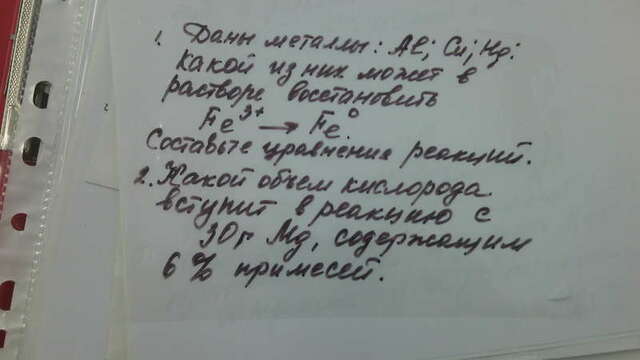 1. Даны металлы: Al; Cu; Hg.
Какой из них может в
растворе восстановить
Fe³⁺ → Fe⁰.
Составьте уравнения реакций.
2. Какой объем кислорода
вступит в реакцию с
30г Mg, содержащим
6% примесей.